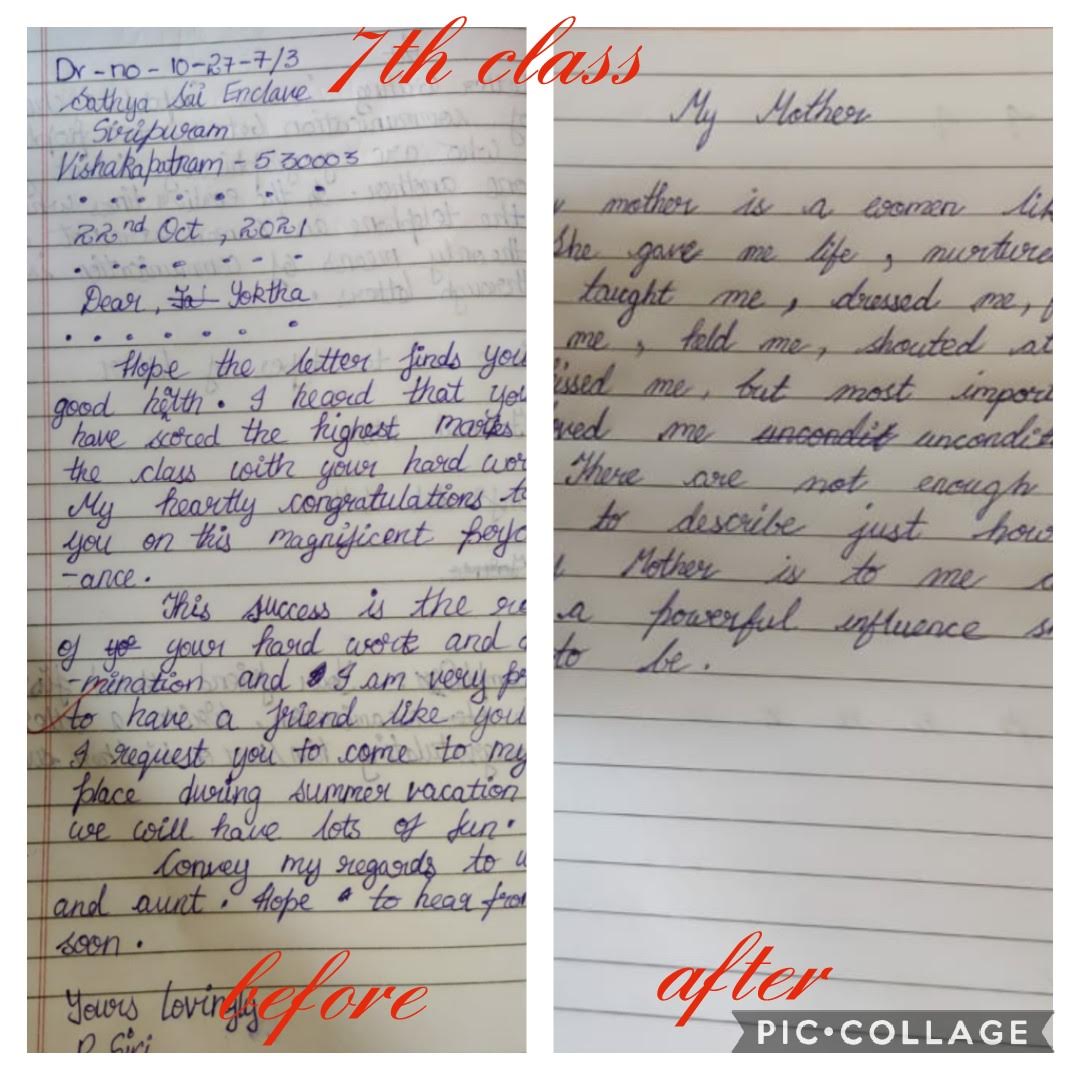 7th class
Dr-no-10-27-7/3
Sathya Sai Enclave
Siripuram
Vishakapatnam - 530003
22nd Oct, 2021
Dear, Yoktha
Hope the letter finds you
good helth. I heard that you
have scored the highest marks
the class with your hard wor
My heartly congratulations to
you on this magnificent perfo
-ance.
This success is the re
of your hard work and d
-mination and I am very pr
to have a friend like you
I request you to come to my
place during summer vacation
we will have lots of fun.
Convey my regards to u
and aunt. Hope to hear from
soon.
Yours lovingly
P. Siri
before
My Mother
y mother is a women lik
She gave me life, nurture
taught me, dressed me, f
me, held me, shouted at
issed me, but most import
oved me uncondit uncondit
There are not enough
to describe just how
Mother is to me
a powerful influence s
to be.
after
PIC•COLLAGE